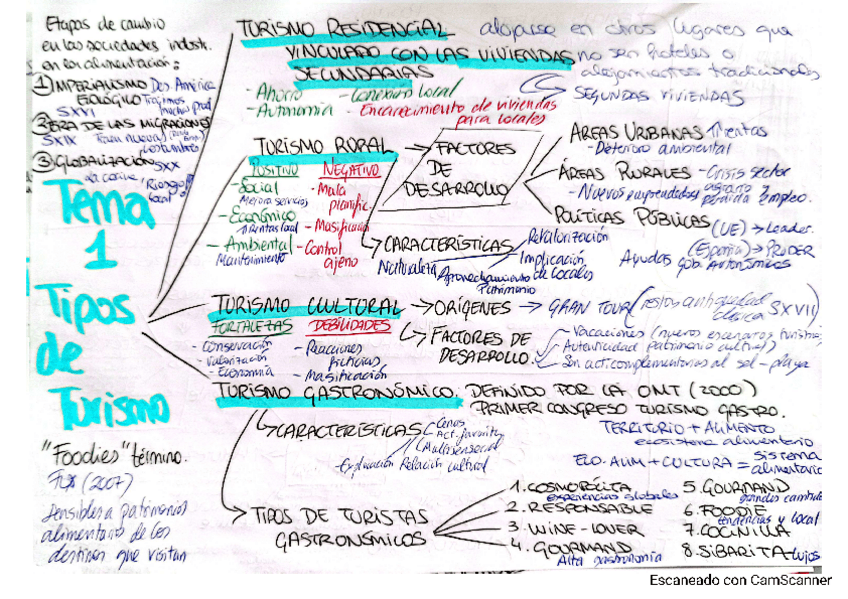 Etapas de cambio
en las sociedades indust.
en la alimentación:
1) IMPERIALISMO Des. América
ECOLÓGICO
SXVI
2) ERA DE LAS MIGRACIONES
SXIX
costumbres
3) GLOBALIZACIÓN SXX
Tema
1
Tipos
de
Turismo
"Foodies" término.
(2007)
sensibles a patrimonios
alimentario de los
destinos que visitan
TURISMO RESIDENCIAL
VINCULADO CON LAS VIVIENDAS
SECUNDARIAS
alojarse en otros lugares que
no sen hoteles o
alojamientos tradicionales
SEGUNDAS VIVIENDAS
- Ahorro
- Conexión local
- Autonomía
- Encarecimiento de viviendas
para locales
TURISMO RURAL
→ FACTORES
DE
DESARROLLO
POSITIVO
NEGATIVO
- Social
Mejora servicios
- Económico
↑Rentas local
- Ambiental
Mantenimiento
- Mala
planific.
- Masificación
- Control
ajeno
ÁREAS URBANAS ↑Rentas
- Deterioro ambiental
ÁREAS RURALES - Crisis sector
agrario y
pérdida empleo.
- Nuevos emprendedores
POLÍTICAS PÚBLICAS
(UE) → Leader.
(España) → PRODER
Ayudas gob. autonómicos
CARACTERÍSTICAS
Naturaleza
Revalorización
Implicación
de locales
Aprovechamiento
Patrimonio
TURISMO CULTURAL → ORÍGENES → GRAN TOUR (restos antigüedad
clásica SXVII)
FORTALEZAS
DEBILIDADES
- Conservación
- Valorización
- Economía
- Reacciones
ficticias
- Masificación
FACTORES DE
DESARROLLO.
Vacaciones (nuevos escenarios turísticos)
Autenticidad (patrimonio cultural)
Son act. complementarias al sol - playa
TURISMO GASTRONÓMICO: DEFINIDO POR LA OMT (2000)
PRIMER CONGRESO TURISMO GASTRO.
TERRITORIO + ALIMENTO
ecosistema alimentario
ECO. ALIM + CULTURA = sistema
alimentario
CARACTERÍSTICAS
- Cenas
Act. favorita
Multisensorial
Relación cultural
- Exploración
TIPOS DE TURISTAS
GASTRONÓMICOS
1. COSMOPOLITA
experiencias globales
2. RESPONSABLE
3. WINE-LOVER
4. GOURMAND
Alta gastronomía
5. GOURMAND
grandes cantid
6. FOODIE
tendencias y local
7. COCINILLA
8. SIBARITA - Lujos
Escaneado con CamScanner